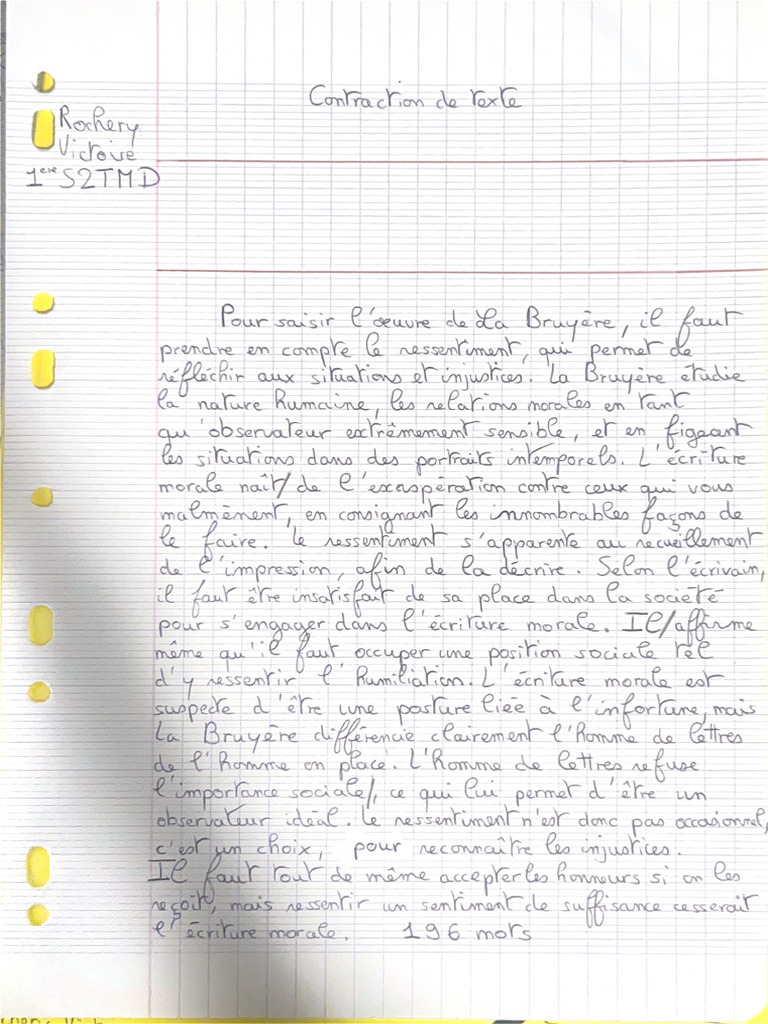 Contraction de texte
Rochery
Victoire
1ère S2TMD
Pour saisir l'œuvre de La Bruyère, il faut
prendre en compte le ressentiment, qui permet de
réfléchir aux situations et injustices. La Bruyère étudie
la nature humaine, les relations morales en tant
qu'observateur extrêmement sensible, et en figeant
les situations dans des portraits intemporels. L'écriture
morale naît/ de l'exaspération contre ceux qui vous
malmènent, en consignant les innombrables façons de
le faire. Le ressentiment s'apparente au recueillement
de l'impression, afin de la décrire. Selon l'écrivain,
il faut être insatisfait de sa place dans la société
pour s'engager dans l'écriture morale. Il/affirme
même qu'il faut occuper une position sociale tel
d'y ressentir l'humiliation. L'écriture morale est
suspecte d'être une posture liée à l'infortune, mais
La Bruyère différencie clairement l'homme de lettres
de l'homme en place. L'homme de lettres refuse
l'importance sociale/, ce qui lui permet d'être un
observateur idéal. Le ressentiment n'est donc pas occasionnel,
c'est un choix, pour reconnaître les injustices.
Il faut tout de même accepter les honneurs si on les
reçoit, mais ressentir un sentiment de suffisance cesserait
l'écriture morale. 196 mots